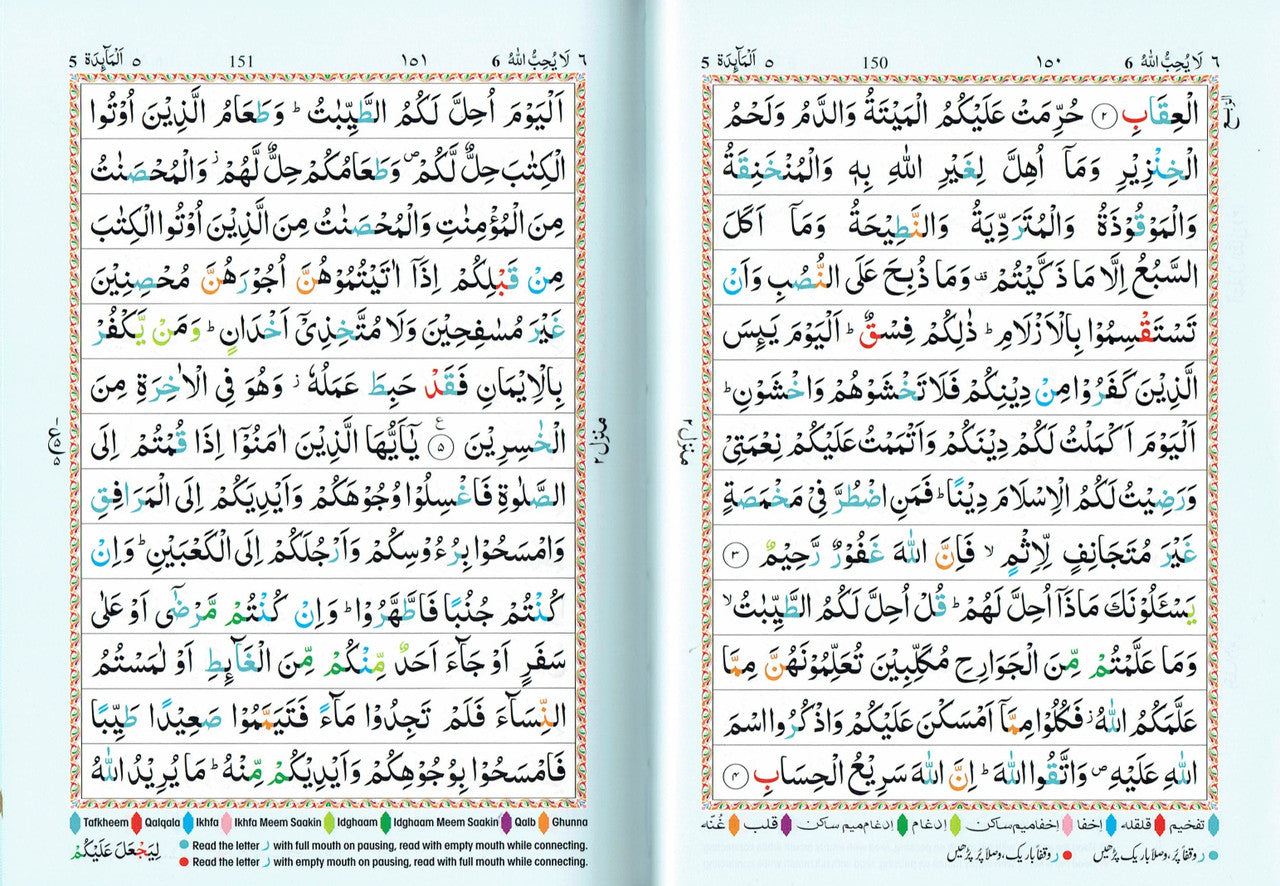 ٦ لَا يُحِبُّ اللّٰهُ 6 ١٥٠ 150 ٥ اَلْمَآئِدَة 5
الْعِقَابِ ۝٢ حُرِّمَتْ عَلَيْكُمُ الْمَيْتَةُ وَالدَّمُ وَلَحْمُ
الْخِنْزِيْرِ وَمَاۤ اُهِلَّ لِغَيْرِ اللّٰهِ بِهٖ وَالْمُنْخَنِقَةُ
وَالْمَوْقُوْذَةُ وَالْمُتَرَدِّيَةُ وَالنَّطِيْحَةُ وَمَاۤ اَكَلَ
السَّبُعُ اِلَّا مَا ذَكَّيْتُمْ ۫ وَمَا ذُبِحَ عَلَى النُّصُبِ وَاَنْ
تَسْتَقْسِمُوْا بِالْاَزْلَامِ ؕ ذٰلِكُمْ فِسْقٌ ؕ اَلْيَوْمَ يَىِٕسَ
الَّذِيْنَ كَفَرُوْا مِنْ دِيْنِكُمْ فَلَا تَخْشَوْهُمْ وَاخْشَوْنِ ؕ
اَلْيَوْمَ اَكْمَلْتُ لَكُمْ دِيْنَكُمْ وَاَتْمَمْتُ عَلَيْكُمْ نِعْمَتِيْ
وَرَضِيْتُ لَكُمُ الْاِسْلَامَ دِيْنًا ؕ فَمَنِ اضْطُرَّ فِيْ مَخْمَصَةٍ
غَيْرَ مُتَجَانِفٍ لِّاِثْمٍ ۙ فَاِنَّ اللّٰهَ غَفُوْرٌ رَّحِيْمٌ ۝٣
يَسْـَٔلُوْنَكَ مَاذَاۤ اُحِلَّ لَهُمْ ؕ قُلْ اُحِلَّ لَكُمُ الطَّيِّبٰتُ ۙ
وَمَا عَلَّمْتُمْ مِّنَ الْجَوَارِحِ مُكَلِّبِيْنَ تُعَلِّمُوْنَهُنَّ مِمَّا
عَلَّمَكُمُ اللّٰهُ ؗ فَكُلُوْا مِمَّاۤ اَمْسَكْنَ عَلَيْكُمْ وَاذْكُرُوا اسْمَ
اللّٰهِ عَلَيْهِ ۪ وَاتَّقُوا اللّٰهَ ؕ اِنَّ اللّٰهَ سَرِيْعُ الْحِسَابِ ۝٤
منزل ٢
تفخیم قلقله إخفا إخفامیم ساکن إدغام إدغام میم ساکن قلب غُنّه
ر وقفاً پُر، وصلاً باریک پڑھیں ر وقفاً باریک، وصلاً پُر پڑھیں
٦ لَا يُحِبُّ اللّٰهُ 6 ١٥١ 151 ٥ اَلْمَآئِدَة 5
اَلْيَوْمَ اُحِلَّ لَكُمُ الطَّيِّبٰتُ ؕ وَطَعَامُ الَّذِيْنَ اُوْتُوا
الْكِتٰبَ حِلٌّ لَّكُمْ ۪ وَطَعَامُكُمْ حِلٌّ لَّهُمْ ؗ وَالْمُحْصَنٰتُ
مِنَ الْمُؤْمِنٰتِ وَالْمُحْصَنٰتُ مِنَ الَّذِيْنَ اُوْتُوا الْكِتٰبَ
مِنْ قَبْلِكُمْ اِذَاۤ اٰتَيْتُمُوْهُنَّ اُجُوْرَهُنَّ مُحْصِنِيْنَ
غَيْرَ مُسٰفِحِيْنَ وَلَا مُتَّخِذِيْۤ اَخْدَانٍ ؕ وَمَنْ يَّكْفُرْ
بِالْاِيْمَانِ فَقَدْ حَبِطَ عَمَلُهٗ ؗ وَهُوَ فِي الْاٰخِرَةِ مِنَ
الْخٰسِرِيْنَ ۝٥ ع يٰۤاَيُّهَا الَّذِيْنَ اٰمَنُوْۤا اِذَا قُمْتُمْ اِلَى
الصَّلٰوةِ فَاغْسِلُوْا وُجُوْهَكُمْ وَاَيْدِيَكُمْ اِلَى الْمَرَافِقِ
وَامْسَحُوْا بِرُءُوْسِكُمْ وَاَرْجُلَكُمْ اِلَى الْكَعْبَيْنِ ؕ وَاِنْ
كُنْتُمْ جُنُبًا فَاطَّهَّرُوْا ؕ وَاِنْ كُنْتُمْ مَّرْضٰۤى اَوْ عَلٰى
سَفَرٍ اَوْ جَآءَ اَحَدٌ مِّنْكُمْ مِّنَ الْغَآىِٕطِ اَوْ لٰمَسْتُمُ
النِّسَآءَ فَلَمْ تَجِدُوْا مَآءً فَتَيَمَّمُوْا صَعِيْدًا طَيِّبًا
فَامْسَحُوْا بِوُجُوْهِكُمْ وَاَيْدِيْكُمْ مِّنْهُ ؕ مَا يُرِيْدُ اللّٰهُ
منزل ٢
Tafkheem Qalqala Ikhfa Ikhfa Meem Saakin Idghaam Idghaam Meem Saakin Qalb Ghunna
Read the letter ر with full mouth on pausing, read with empty mouth while connecting.
Read the letter ر with empty mouth on pausing, read with full mouth while connecting.
لِيَجْعَلَ عَلَيْكُمْ